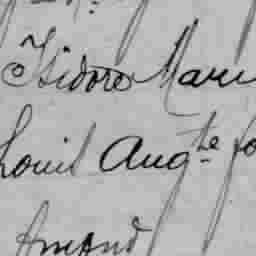 Isidore Mari
Louis Aug.te
Amand